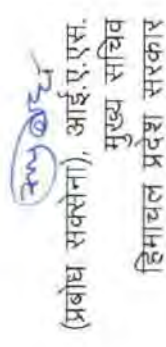 (प्रबोध सक्सेना), आई.ए.एस.
मुख्य सचिव
हिमाचल प्रदेश सरकार